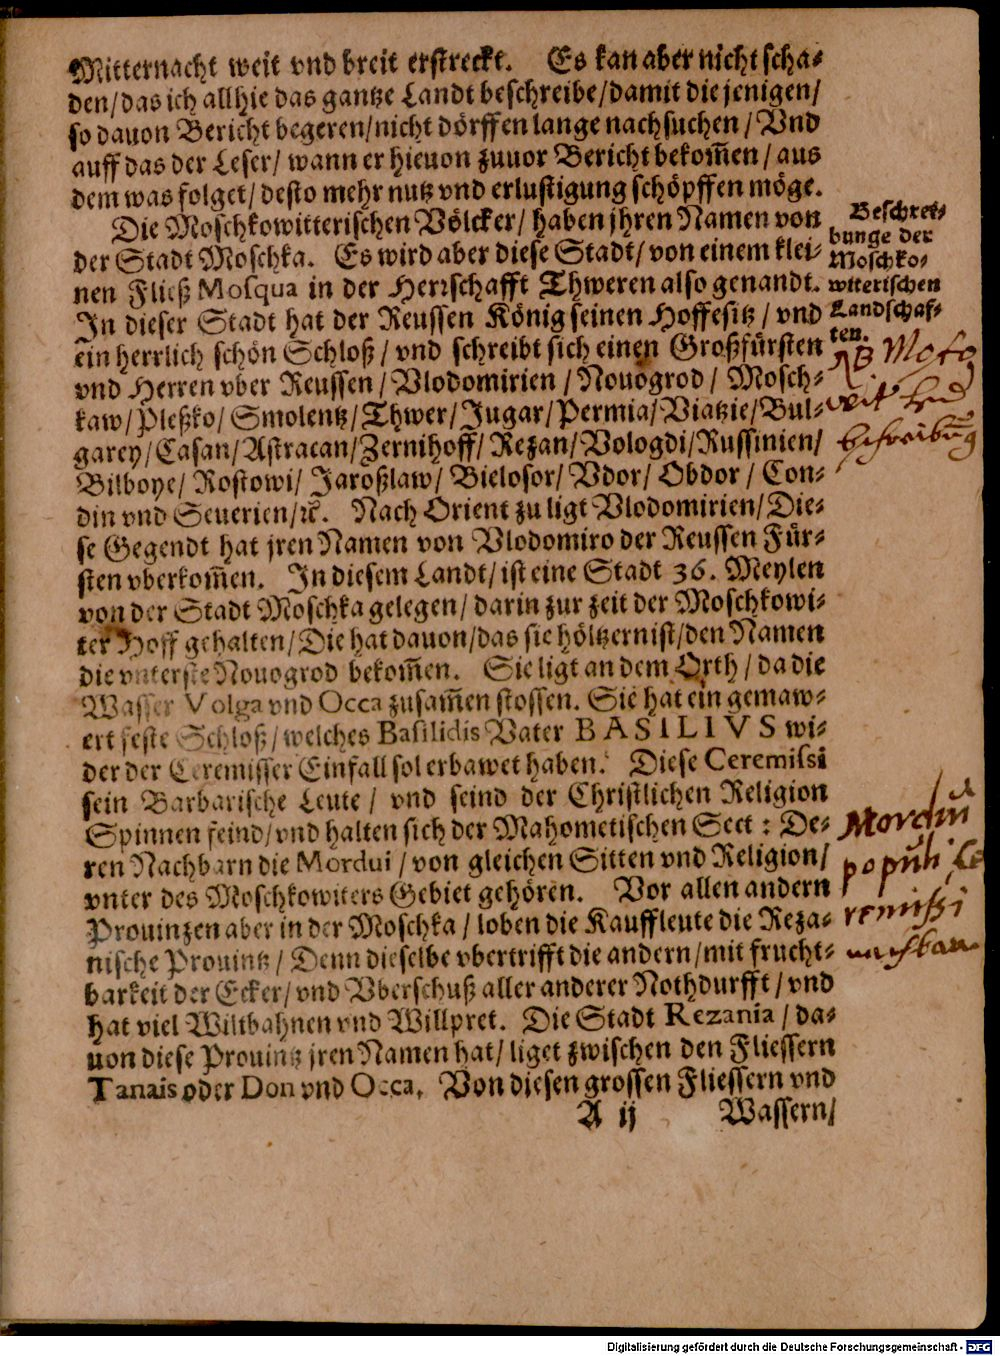 Mitternacht weit vnd breit erstreckt. Es kan aber nicht scha⸗
den/das ich allhie das gantze Landt beschreibe/damit die jenigen/
so dauon Bericht begeren/nicht dörffen lange nachsuchen/Vnd
auff das der Leser/wann er hieuon zuuor Bericht bekom̃en/aus
dem was folget/desto mehr nutz vnd erlustigung schöpffen möge.
Die Moschkowitterischen Völcker/haben jhren Namen von
der Stadt Moschka. Es wird aber diese Stadt/von einem klei⸗
nen Fließ Mosqua in der Herrschafft Thweren also genandt.
In dieser Stadt hat der Reussen König seinen Hoffesitz/vnd
ein herrlich schön Schloß/vnd schreibt sich einen Großfürsten
vnd Herren vber Reussen/Vlodomirien/Nouogrod/Mosch⸗
kaw/Pleßko/Smolentz/Thwer/Jugar/Permia/Viatzie/Bul⸗
garey/Casan/Astracan/Zernihoff/Rezan/Vologdi/Russinien/
Bilboye/Rostowi/Jaroßlaw/Bielosor/Vdor/Obdor/Con⸗
din vnd Seuerien/ꝛc. Nach Orient zu ligt Vlodomirien/Die⸗
se Gegendt hat jren Namen von Vlodomiro der Reussen Für⸗
sten vberkom̃en. In diesem Landt/ist eine Stadt 36. Meylen
von der Stadt Moschka gelegen/darin zur zeit der Moschkowi⸗
ter Hoff gehalten/Die hat dauon/das sie höltzern ist/den Namen
die vnterste Nouogrod bekom̃en. Sie ligt an dem Orth/da die
Wasser Volga vnd Occa zusam̃en stossen. Sie hat ein gemaw⸗
ert feste Schloß/welches Basilidis Vater BASILIVS wi⸗
der der Ceremisser Einfall sol erbawet haben. Diese Ceremissi
sein Barbarische Leute/vnd seind der Christlichen Religion
Spinnen feind/vnd halten sich der Mahometischen Sect: De⸗
ren Nachbarn die Mordui/von gleichen Sitten vnd Religion/
vnter des Moschkowiters Gebiet gehören. Vor allen andern
Prouinzen aber in der Moschka/loben die Kauffleute die Reza⸗
nische Prouintz/Denn dieselbe vbertrifft die andern/mit frucht⸗
barkeit der Ecker/vnd Vberschuß aller anderer Nothdurfft/vnd
hat viel Wiltbahnen vnd Willpret. Die Stadt Rezania/da⸗
uon diese Prouintz jren Namen hat/liget zwischen den Fliessern
Tanais oder Don vnd Occa. Von diesen grossen Fliessern vnd
A ij Wassern/
Beschrei⸗
bunge der
Moschko⸗
witerischen
Landschaf⸗
ten.
NB Mosco
wit
beschreibūg
Morduī
populi Ce
remißi
nachbarn
Digitalisierung gefördert durch die Deutsche Forschungsgemeinschaft - DFG